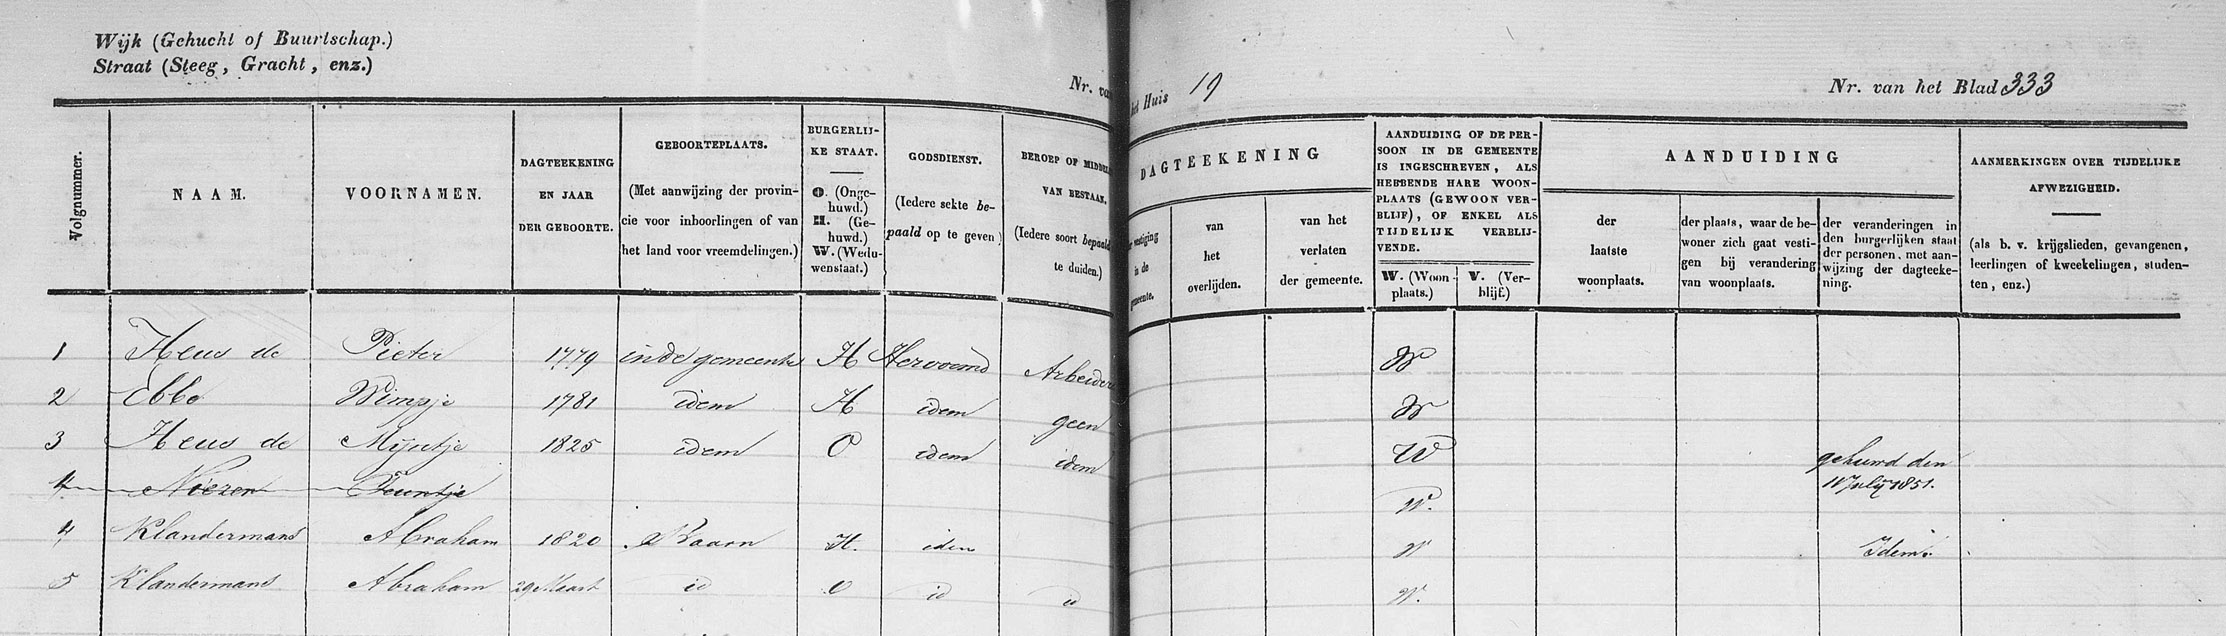 Wijk (Gehucht of Buurtschap.)
Straat (Steeg, Gracht, enz.)
Nr. van het Huis 19
Nr. van het Blad 333
Volgnummer.
NAAM.
VOORNAMEN.
DAGTEEKENING
EN JAAR
DER GEBOORTE.
GEBOORTEPLAATS.
(Met aanwijzing der provin-
cie voor inboorlingen of van
het land voor vreemdelingen.)
BURGERLIJ-
KE STAAT.
O. (Onge-
huwd.)
H. (Ge-
huwd.)
W. (Wedu-
wenstaat.)
GODSDIENST.
(Iedere sekte be-
paald op te geven)
BEROEP OF MIDDEL
VAN BESTAAN.
(Iedere soort bepaald
te duiden.)
DAGTEEKENING
vestiging
in de
gemeente.
van
het
overlijden.
van het
verlaten
der gemeente.
AANDUIDING OF DE PER-
SOON IN DE GEMEENTE
IS INGESCHREVEN, ALS
HEBBENDE HARE WOON-
PLAATS (GEWOON VER-
BLIJF), OF ENKEL ALS
TIJDELIJK VERBLIJ-
VENDE.
W. (Woon
plaats.)
V. (Ver-
blijf.)
AANDUIDING
der
laatste
woonplaats.
der plaats, waar de be-
woner zich gaat vesti-
gen bij verandering
van woonplaats.
der veranderingen in
den burgerlijken staat
der personen, met aan-
wijzing der dagteeke-
ning.
AANMERKINGEN OVER TIJDELIJKE
AFWEZIGHEID.
(als b. v. krijgslieden, gevangenen,
leerlingen of kweekelingen, studen-
ten, enz.)
1 Heus de Pieter 1779 in de gemeente H Hervormd Arbeider W
2 Ebbe Wimpje 1781 idem H idem geen W
3 Heus de Mijntje 1825 idem O idem idem W gehuwd den
11 July 1851.
4 Niezen Teuntje W.
4 Klandermans Abraham 1820 Baarn H. idem W Idem.
5 Klandermans Abraham 29 Maart id O id id W.